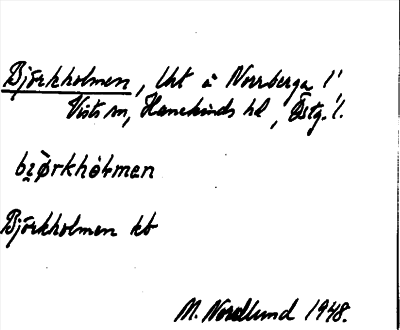 Björkholmen, Urt å Norrberga l:
Vists sn, Hanekinds hd, Östg. l.
bi̯ø̀rkhòlmen
Björkholmen kt
M. Nordlund 1948.